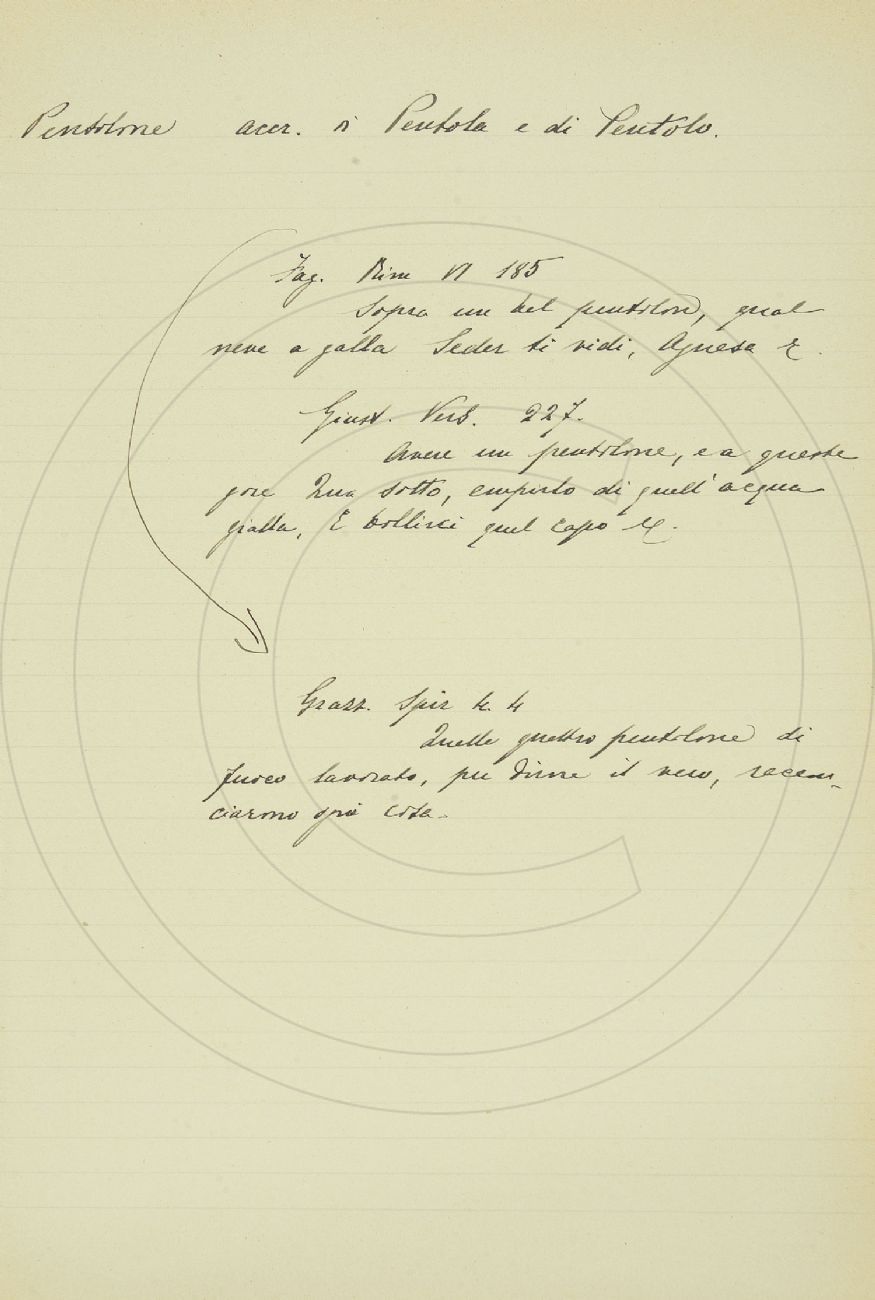 Pentolone accr. di Pentola e di Pentolo.
Fag. Rim VI 185
Sopra un bel pentolon, qual
neve a galla Seder ti vidi, Agnesa &.
Giust. Vers. 227.
Avere un pentolone, e a queste
gore Qua sotto, empirlo di quell'acqua
gialla, E bollirci quel capo &.
Grazz. Spir 4. 4
Quelle quattro pentolone di
fuoco lavorato, per dirne il vero, racconciarono
ciarono cosa.